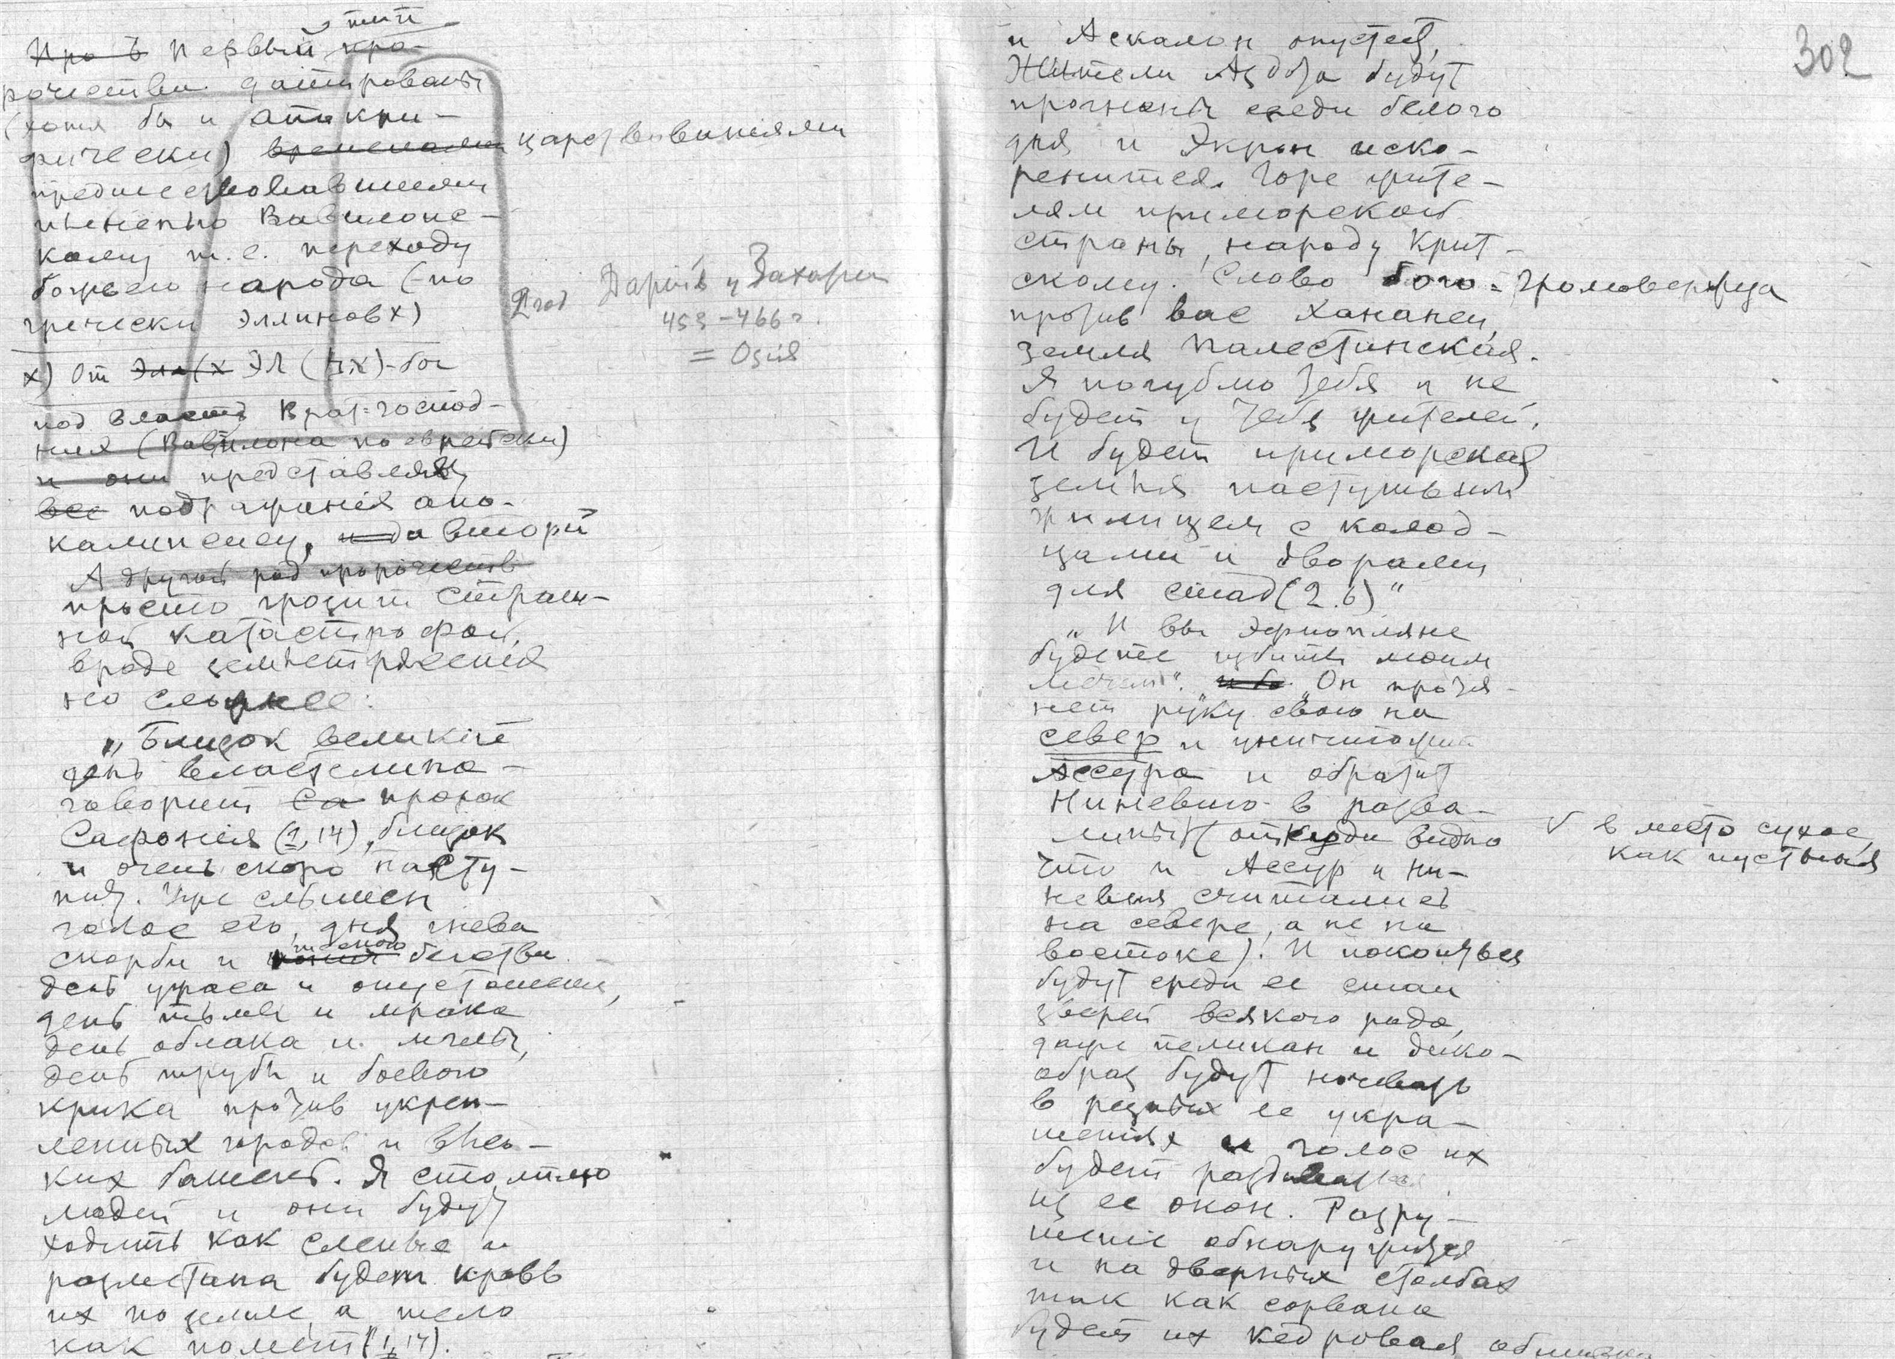 тип
Первый про-
рочества датированы
(хотя бы и апокри-
фически) временами царствованиями
предшествовавшими
пленению Вавилонс-
кому т.е. переходу
божьего народа (-по
гречески эллинов х)
х) От Эл (х ЭЛ (        )-бог
2 год Дарий у Захарии
453-466 г.
= Озия
под власть Врат-господ-
ния (Вавилона по еврейски)
и они представляют
все подражания апо-
калипсису, а второй
А другой род пророчеств
просто грозит страш-
ной катастрофой,
вроде землетрясения
но сильнее:
„Близок великий
день властелина -
говорит Са пророк
Сафония (1,14), близок
и очень скоро насту-
пит. Уже слышен
голос его, дня гнева
скорби и бегства
день ужаса и опустошения,
день тьмы и мрака
день облака и мглы,
день трубы и боевого
крика против укреп-
ленных городов и высо-
ких башень. Я стесню
людей и они будут
ходить как слепые и
разметана будет кровь
их по земле, а тело
как помет (1,17).
302
и Аскалон опустеет,
Жители Аздода будут
прогнаны среди белого
дня и Экрон иско-
ренится. Горе жите-
лям приморской
страны, народу Крит-
скому! Слово бога-громовержца
против вас Хананеи,
земля Палестинская.
Я погублю тебя и не
будет у тебя жителей.
И будет приморская
земля пастушьим
жилищем с колод-
цами и дворами
для стад (2.6)"
„И вы эфиопляне
будете убиты моим
мечем". Он протя-
нет руку свою на
север и уничтожит
Ассура и обратит
Ниневию в разва-
лины V (откуда видно
V в место сухое,
как пустыня
что и Ассур и Ни-
невия считались
на севере, а не на
востоке). И покоиться
будут среди ее стаи
зверей всякого рода,
даже пеликан и дико-
образ будут ночевать
в резных ее укра-
шениях и голос их
будет раздаваться
из ее окон. Разру-
шение обнаружится
и на дверных столбах
так как сорвана
будет их кедровая обшивка